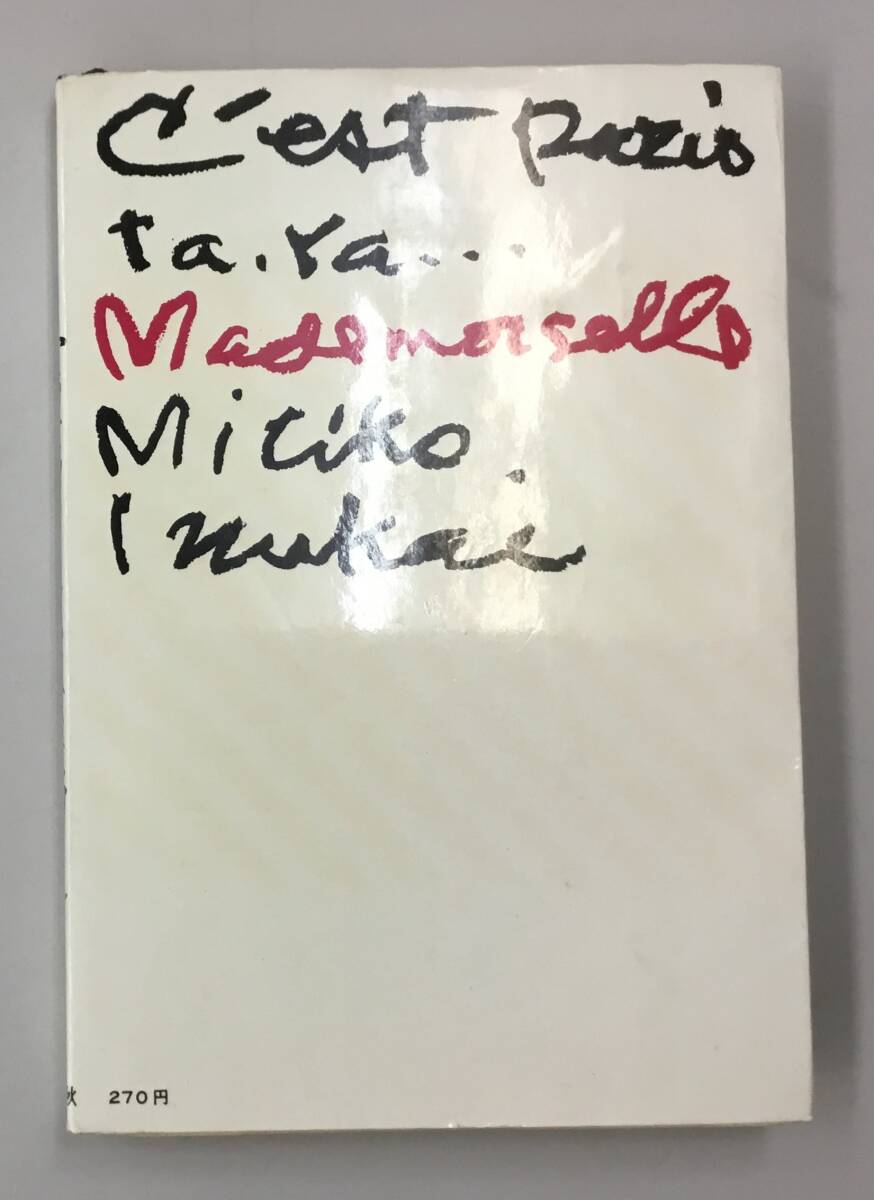 C'est paris
ta.ra...
Mademoiselle
Miciko
Inukai
秋 270円